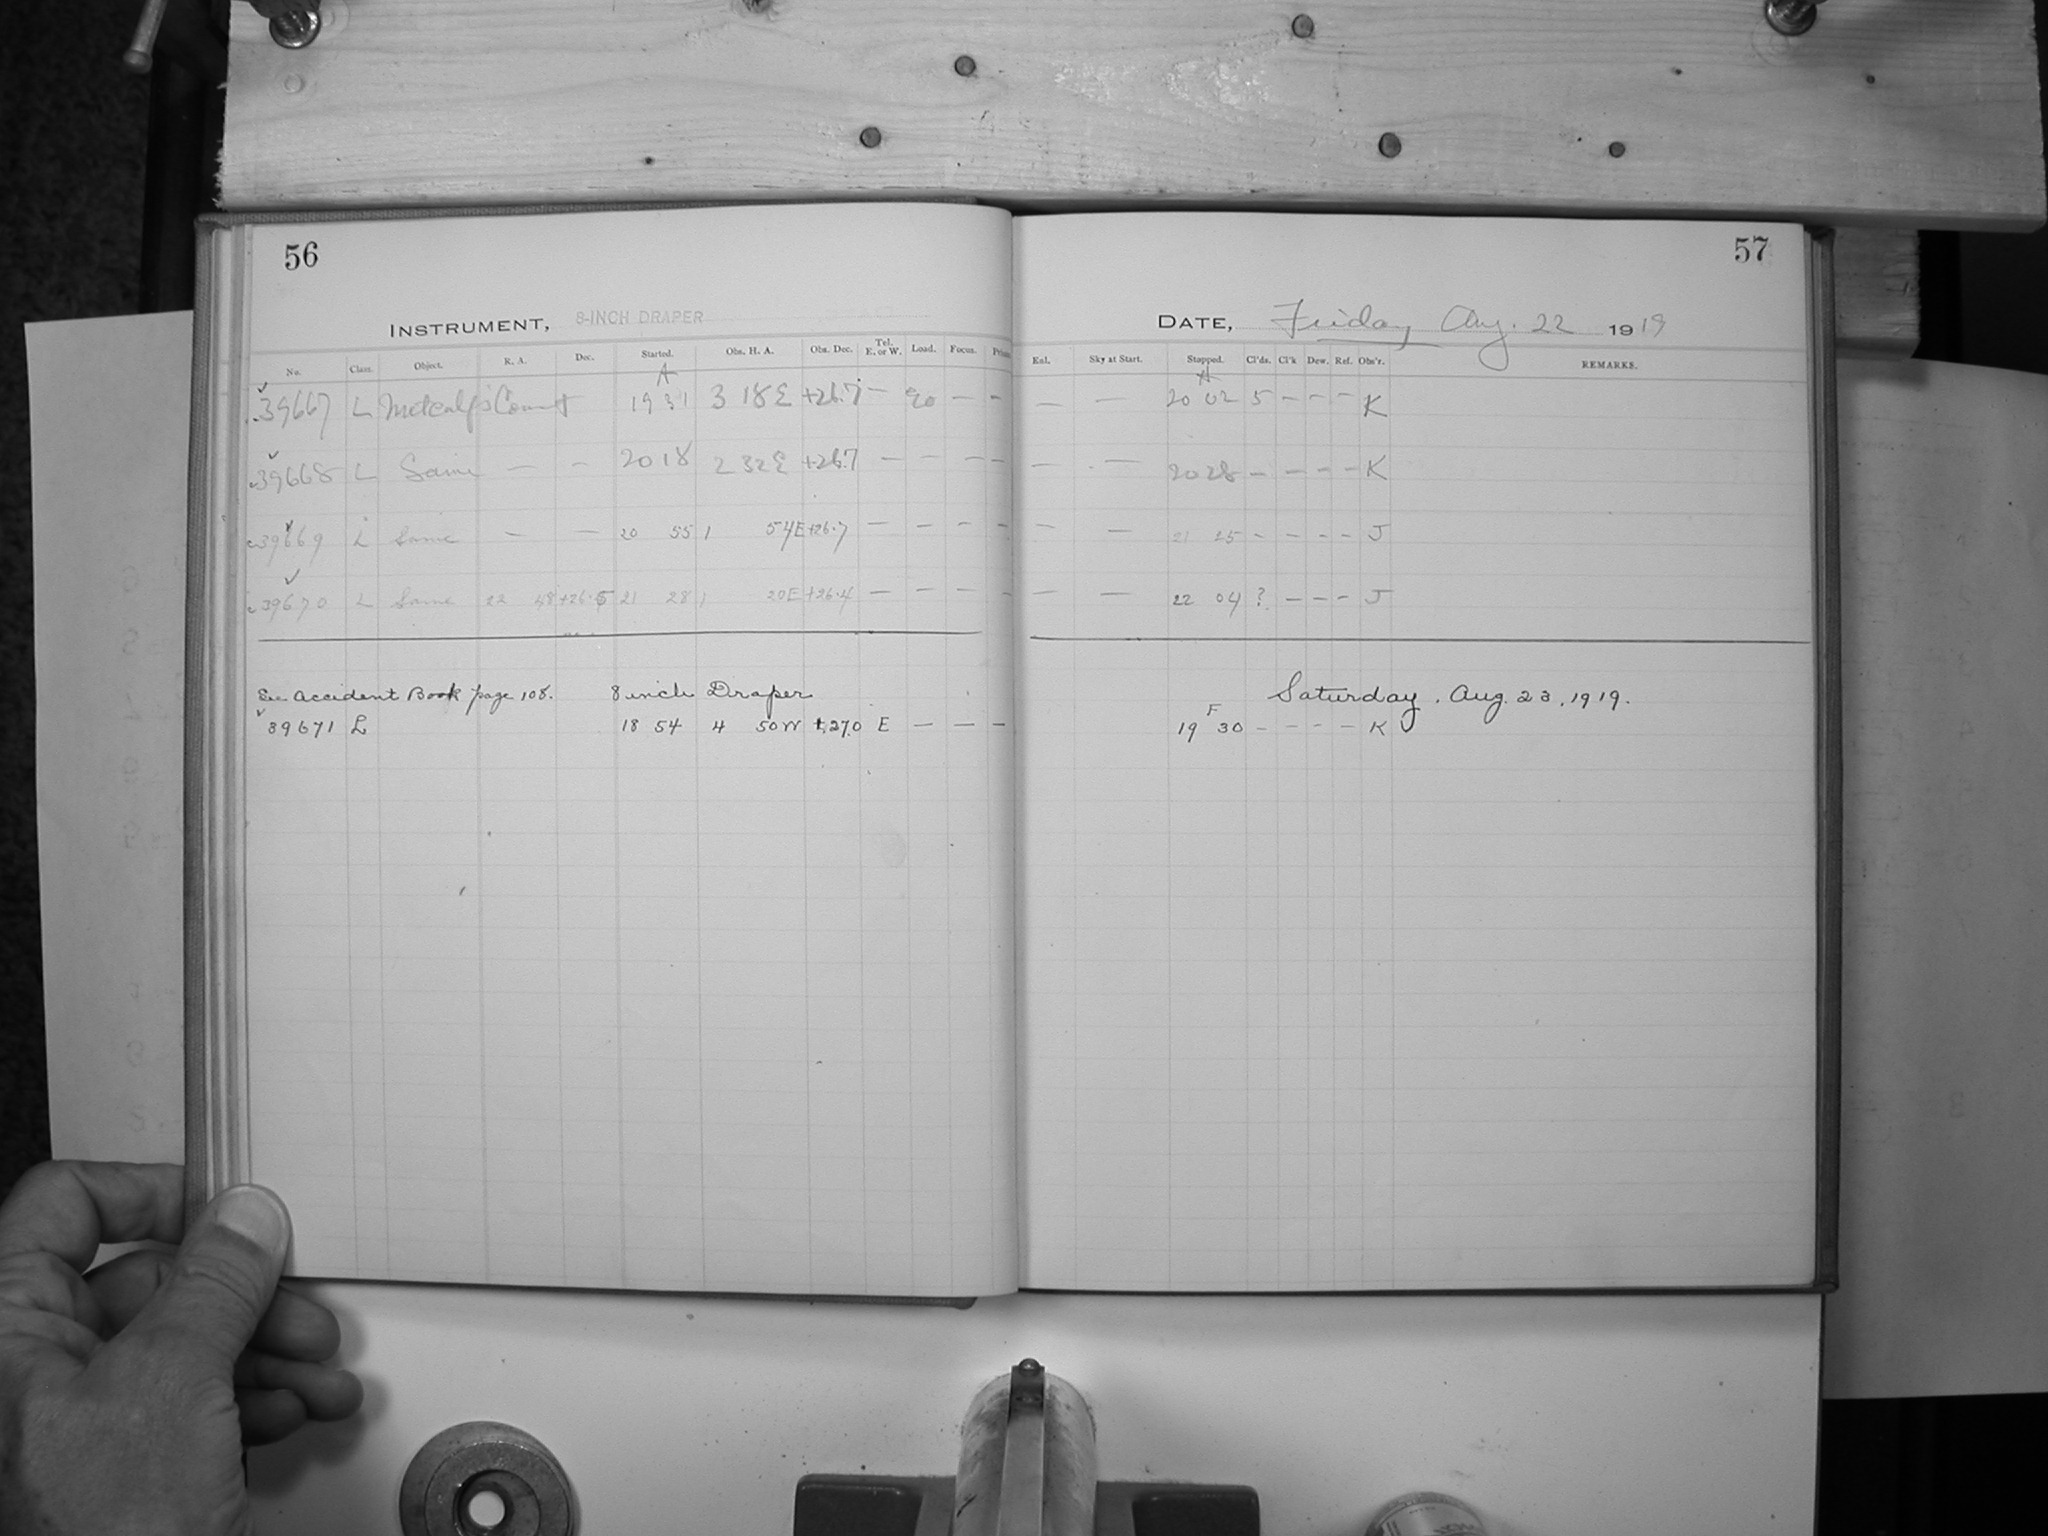 56
57
INSTRUMENT, 8-INCH DRAPER
DATE, Friday Aug. 22 1919
No. Class. Object. R. A. Dec. Started. Obs. H. A. Obs. Dec. Tel. E. or W. Load. Focus. Enl. Sky at Start. Stopped. Cl'ds. Cl'k Dew. Ref. Obs'r. REMARKS.
A A
39667 L Metcalf's Comet 19 31 3 18 E +26.7 — — — — — 20 02 5 – – – K
39668 L Same — – 20 18 2 32 E +26.7 — – – – — — 20 28 – – – – K
39669 L Same – — 20 55 1 54 E +26.7 — – – – – — 21 25 – – – – J
39670 L Same 22 48 +26.5 21 28 1 20 E +26.4 — – – – – — 22 04 ? – – – J
See Accident Book page 108. 8 inch Draper Saturday. Aug. 23, 1919.
F
39671 L 18 54 4 50 W +27.0 E — — – 19 30 – – – – K